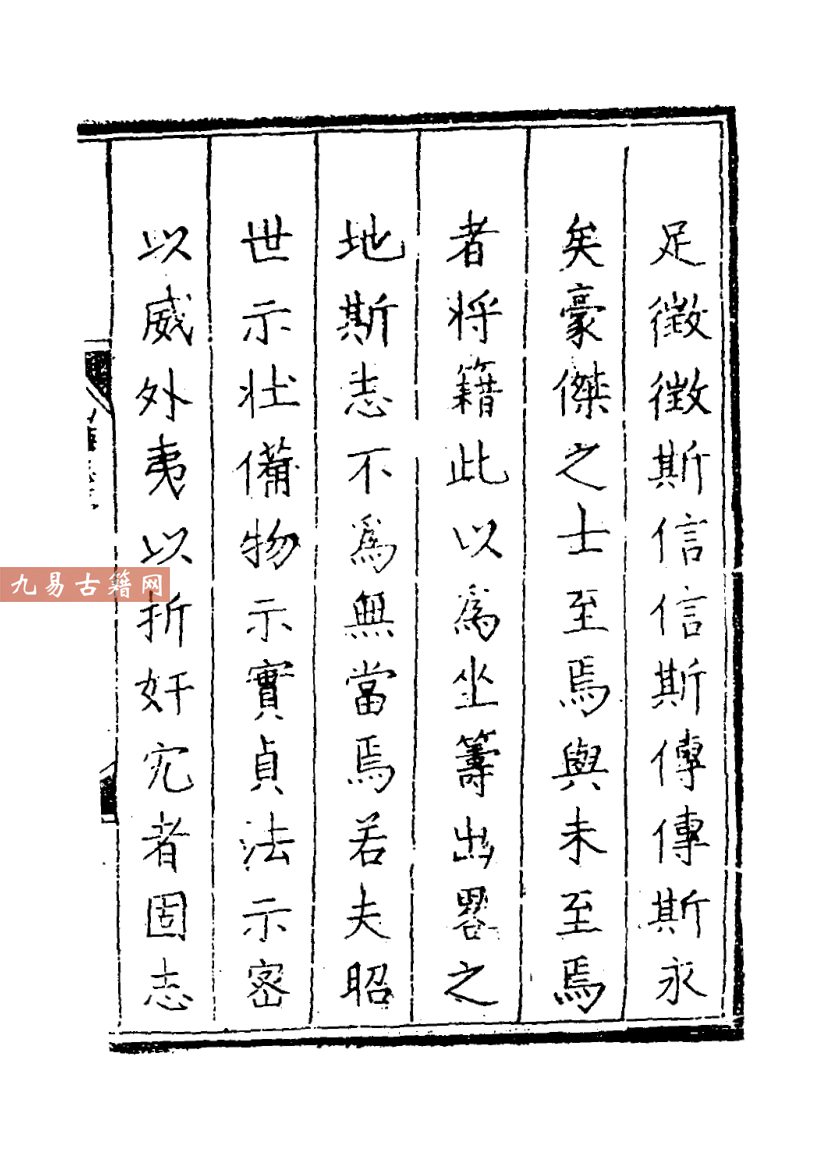 足徵徵斯信信斯傳傳斯永
矣豪傑之士至焉與未至焉
者将籍此以為坐籌出畧之
地斯志不為無當焉若夫昭
世示壯備物示實貞法示密
以威外夷以折奸宄者固志
九易古籍网